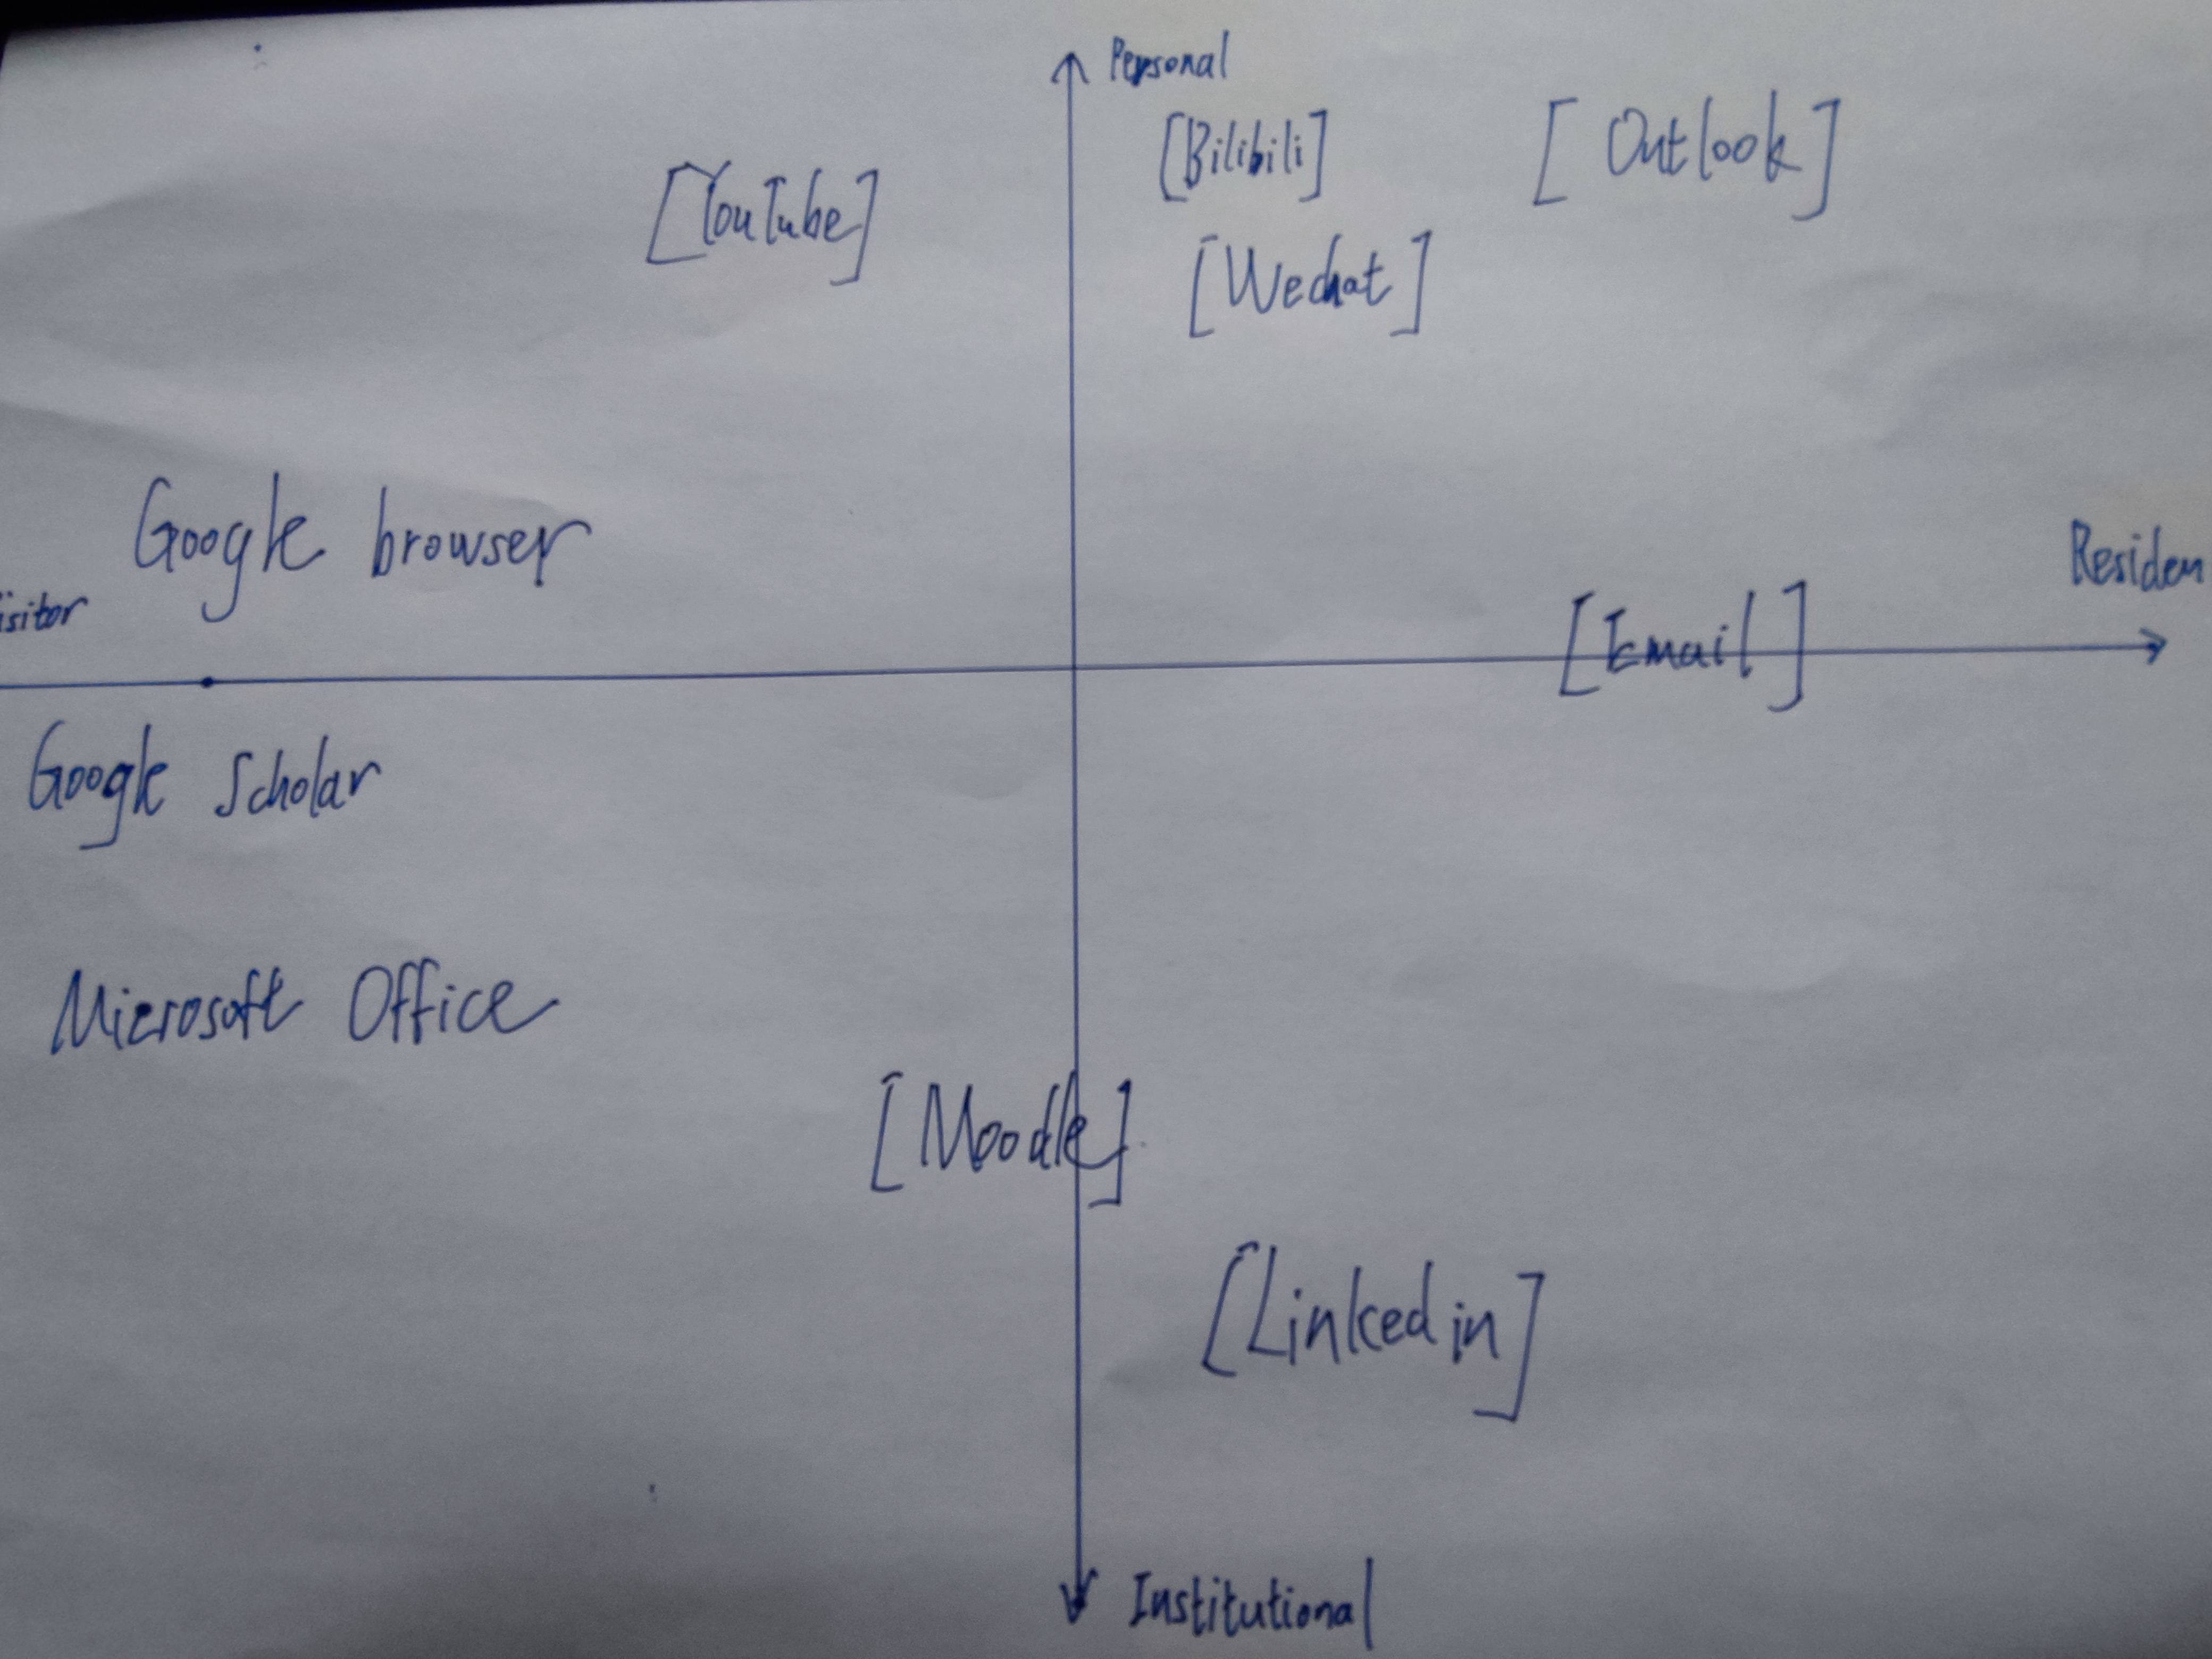 Personal
[Bilibili]
[Outlook]
[YouTube]
[Wechat]
Google browser
isitor
Residen
[Email]
Google Scholar
Microsoft Office
[Moodle]
[Linked in]
Institutional